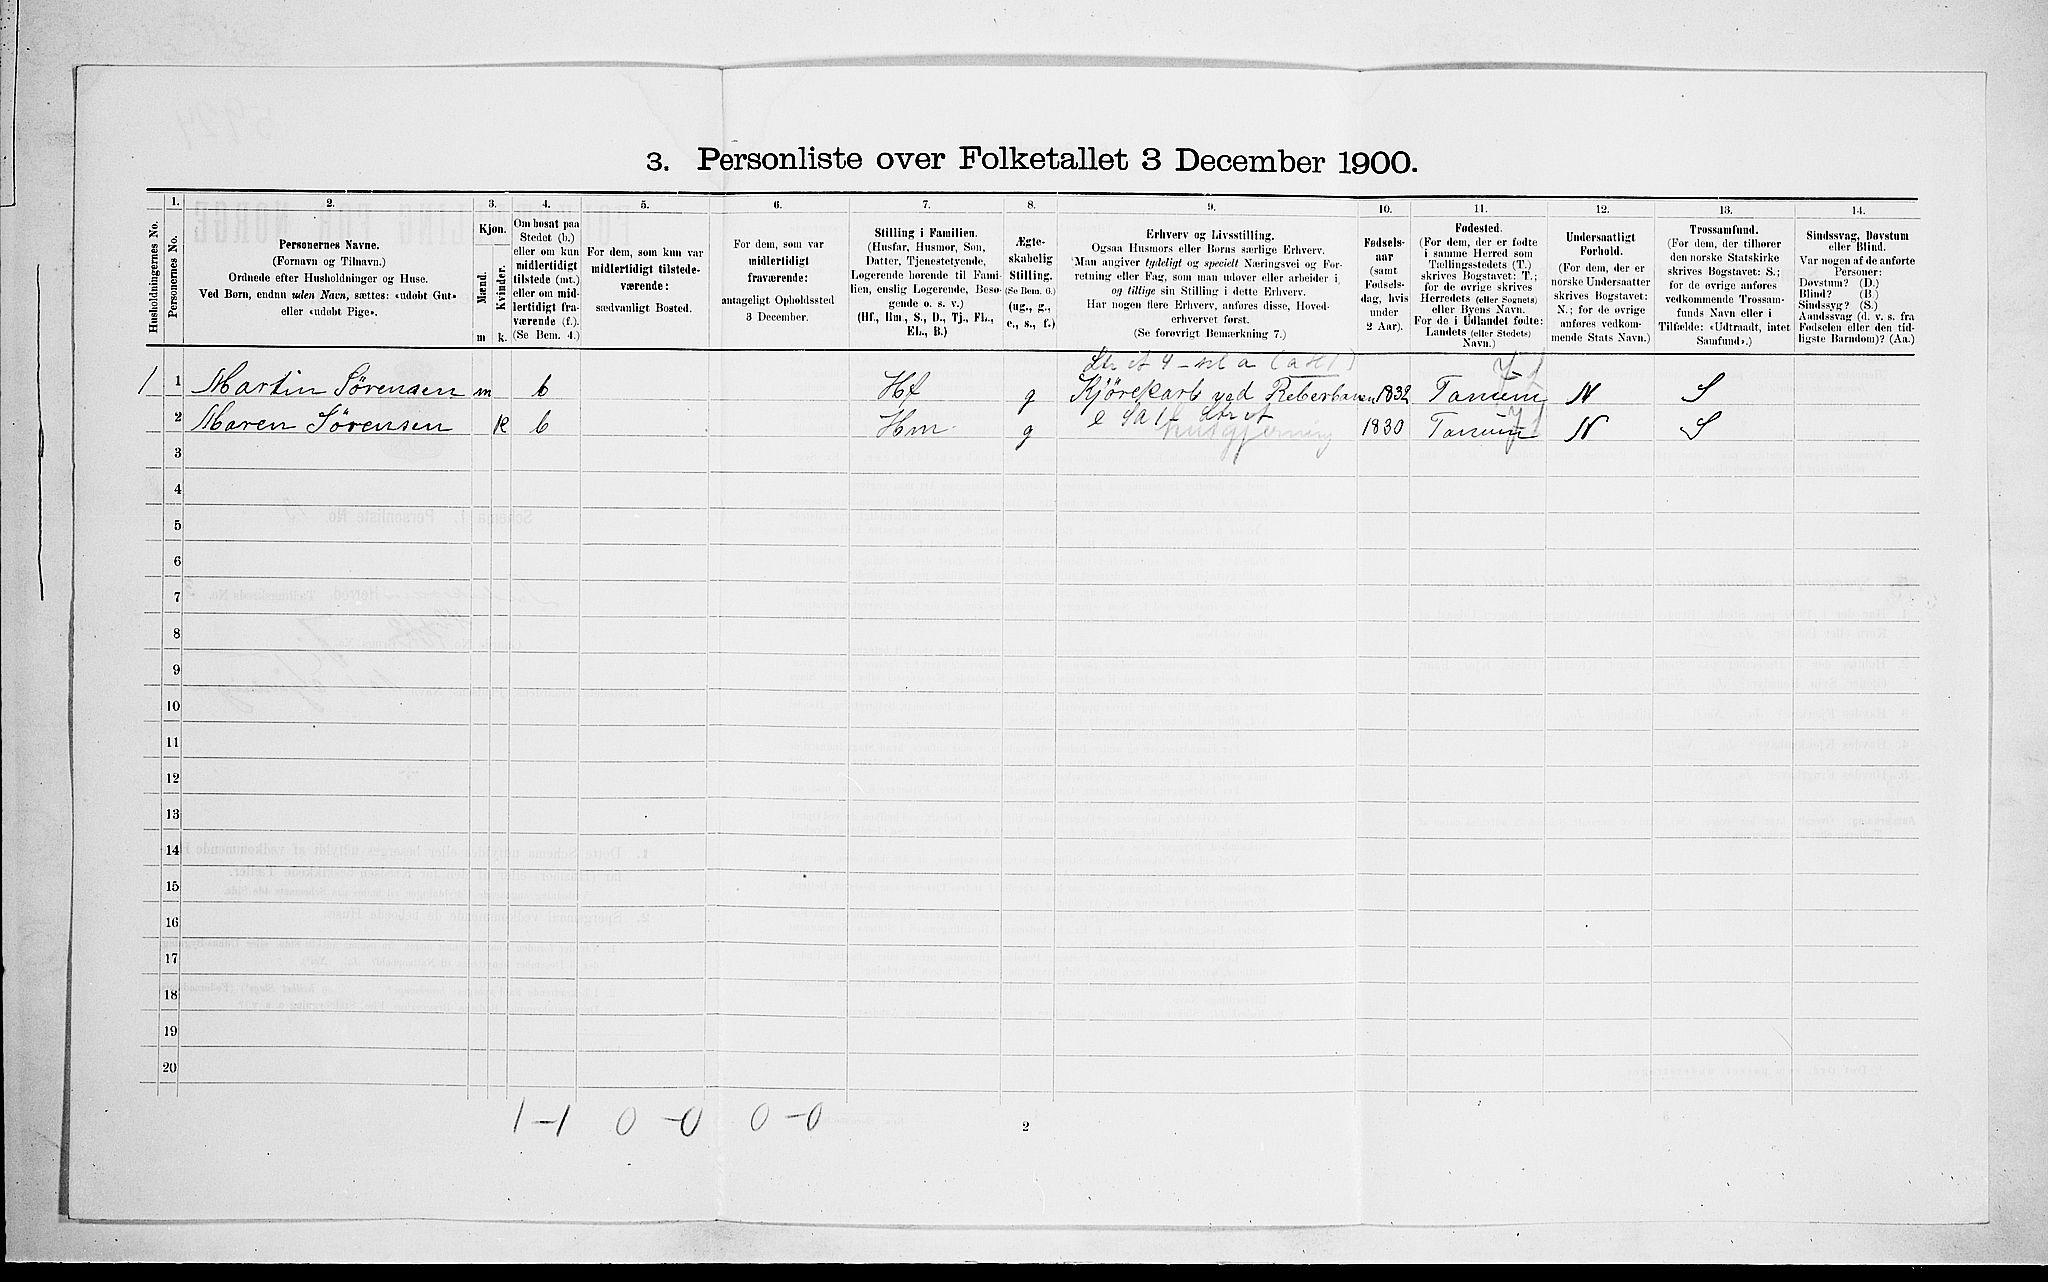 3. Personliste over Folketallet 3 December 1900.
1. 2. 3. 4. 5. 6. 7. 8. 9. 10. 11. 12. 13. 14.
Husholdningernes No.
Personernes No.
Personernes Navne.
(Fornavn og Tilnavn.)
Ordnede efter Husholdninger og Huse.
Ved Børn, endnu uden Navn, sættes: «udøbt Gut»
eller «udøbt Pige».
Kjøn.
Mænd.
Kvinder.
m k.
Om bosat paa
Stedet (b.)
eller om kun
midlertidigt
tilstede (mt.)
eller om mid-
lertidigt fra-
værende (f.).
(Se Bem. 4.)
For dem, som kun var
midlertidigt tilstede-
værende:
sædvanligt Bosted.
For dem, som var
midlertidigt
fraværende:
antageligt Opholdssted
3 December.
Stilling i Familien.
(Husfar, Husmor, Søn,
Datter, Tjenestetyende,
Logerende hørende til Fami-
lien, enslig Logerende, Besø-
gende o. s. v.)
(Hf., Hm., S., D., Tj., FL.,
EL., B.)
Ægte-
skabelig
Stilling.
(Se Bem. 6.)
(ug., g.,
e., s., f.)
Erhverv og Livsstilling.
Ogsaa Husmors eller Børns særlige Erhverv.
Man angiver tydeligt og specielt Næringsvei og For-
retning eller Fag, som man udøver eller arbeider i,
og tillige sin Stilling i dette Erhverv.
Har nogen flere Erhverv, anføres disse, Hoved-
erhvervet først.
(Se forøvrigt Bemærkning 7.)
Fødsels-
aar
(samt
Fødsels-
dag, hvis
under
2 Aar).
Fødested.
(For dem, der er fødte
i samme Herred som
Tællingsstedets (T.)
skrives Bogstavet: T.;
for de øvrige skrives
Herredets (eller Sognets)
eller Byens Navn.
For de i Udlandet fødte:
Landets (eller Stedets)
Navn.)
Undersaatligt
Forhold.
(For dem, der er
norske Undersaatter
skrives Bogstavet:
N.; for de øvrige
anføres vedkom-
mende Stats Navn.)
Trossamfund.
(For dem, der tilhører
den norske Statskirke
skrives Bogstavet: S.;
for de øvrige anføres
vedkommende Trossam-
funds Navn eller i
Tilfælde: «Udtraadt, intet
Samfund».)
Sindssvag, Døvstum
eller Blind.
Var nogen af de anførte
Personer:
Døvstum? (D.)
Blind? (B.)
Sindssyg? (S.)
Aandssvag (d. v. s. fra
Fødselen eller den tid-
ligste Barndom)? (Aa.)
1 1 Martin Sörensen m b Hf g Kjörekarl ved Reberbanen 1832 Tanum N S
2 Maren Sörensen k b Hm g 1830 Tanum N S
3
4
5
6
7
8
9
10
11
12
13
14
15
16
17
18
19
20
1-1 0-0 0-0
2